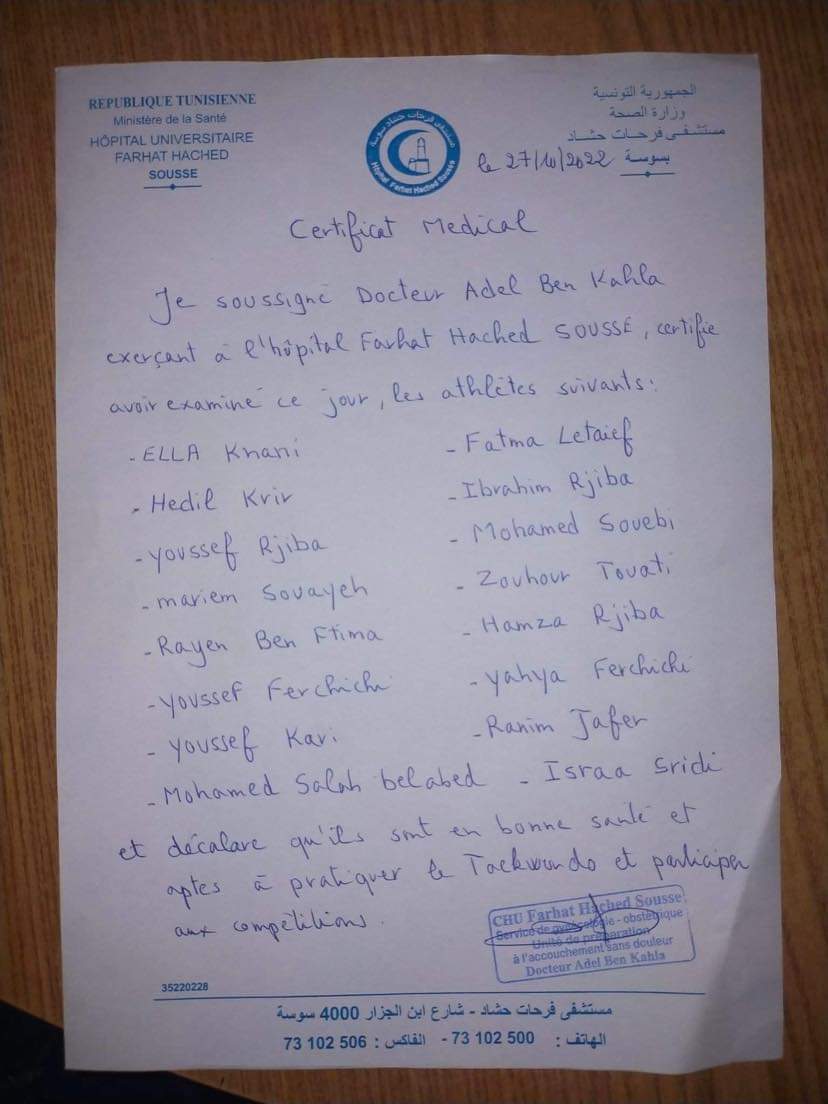 REPUBLIQUE TUNISIENNE
Ministère de la Santé
HÔPITAL UNIVERSITAIRE
FARHAT HACHED
SOUSSE
مستشفى فرحات حشاد سوسة
Hôpital Farhat Hached Sousse
الجمهورية التونسية
وزارة الصحة
مستشفى فرحات حشاد
بسوسة
le 27/10/2022
Certificat Medical
Je soussigné Docteur Adel Ben Kahla
exerçant à l'hôpital Farhat Hached SOUSSE, certifie
avoir examiné ce jour, les athlètes suivants:
- ELLA Khani - Fatma Letaief
- Hedil Krir - Ibrahim Rjiba
- Youssef Rjiba - Mohamed Souebi
- mariem Souayeh - Zouhour Touati
- Rayen Ben Ftima - Hamza Rjiba
- Youssef Ferchichi - Yahya Ferchichi
- Youssef Kari - Ranim Jafer
- Mohamed Salah belabed - Israa Sridi
et décalare qu'ils sont en bonne santé et
aptes à pratiquer le Taekwondo et participer
aux compétitions.
CHU Farhat Hached Sousse
Service de gynécologie - obstétrique
Unité de préparation
à l'accouchement sans douleur
Docteur Adel Ben Kahla
35220228
مستشفى فرحات حشاد - شارع ابن الجزار 4000 سوسة
الهاتف : 73 102 500 - الفاكس : 73 102 506